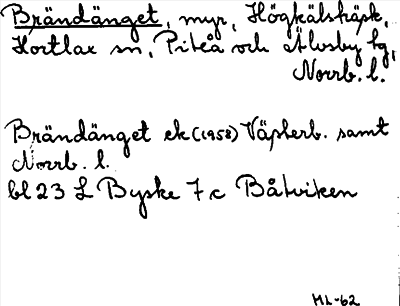 Brändänget, myr, Högkälskäpk,
Hortlax sn, Piteå och Älvsby tg,
Norrb. l.
Brändänget ek (1958) Västerb. samt
Norrb. l.
bl 23 L Byske 7 c Båtviken
ML-62